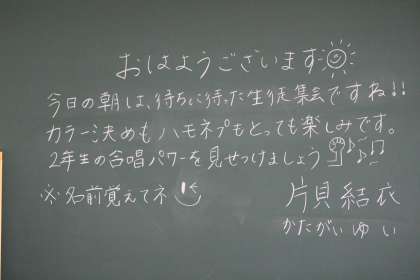 おはようございます
今日の朝は、待ちに待った生徒集会ですね!!
カラー決めもハモネプもとっても楽しみです。
2年生の合唱パワーを見せつけましょう♪♪♫
※名前覚えてネ
片貝結衣
かたがい ゆい